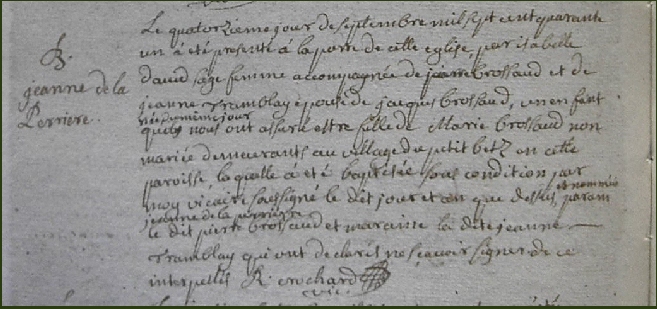 B.
jeanne de la
Perriere.
Le quatorzieme jour de septembre mil sept cent quarante
un à été presenté à la porte de cette eglise, par isabelle
david, sage femme accompagnée de pierre brossaud et de
jeanne Tramblay epouse de jacques brossaud, un enfant
née du meme jour
quels nous ont assuré estre fille de Marie brossaud non
mariée demeurants au village du petit betz en cette
paroisse, laquelle à été baptisée sous condition par
moy vicaire soussigné le dit jour et an que dessus, et nommée parain
jeanne de la perriere
le dit pierre brossaud et maraine la dite jeanne
Tramblay qui ont declarés ne scavoir signer de ce
interpellés R. crochard
vic.